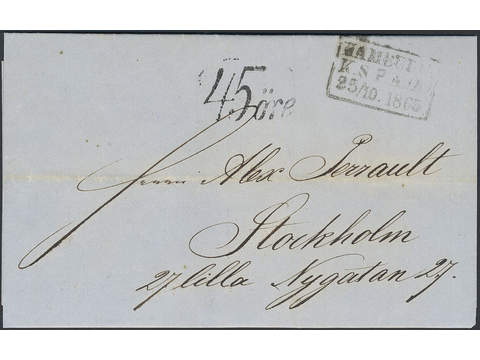 45 öre
HAMBURG
K.S.P.A.(D.)
25/10.1865
Herrn Alex Perrault
Stockholm
27 lilla Nygatan 27.